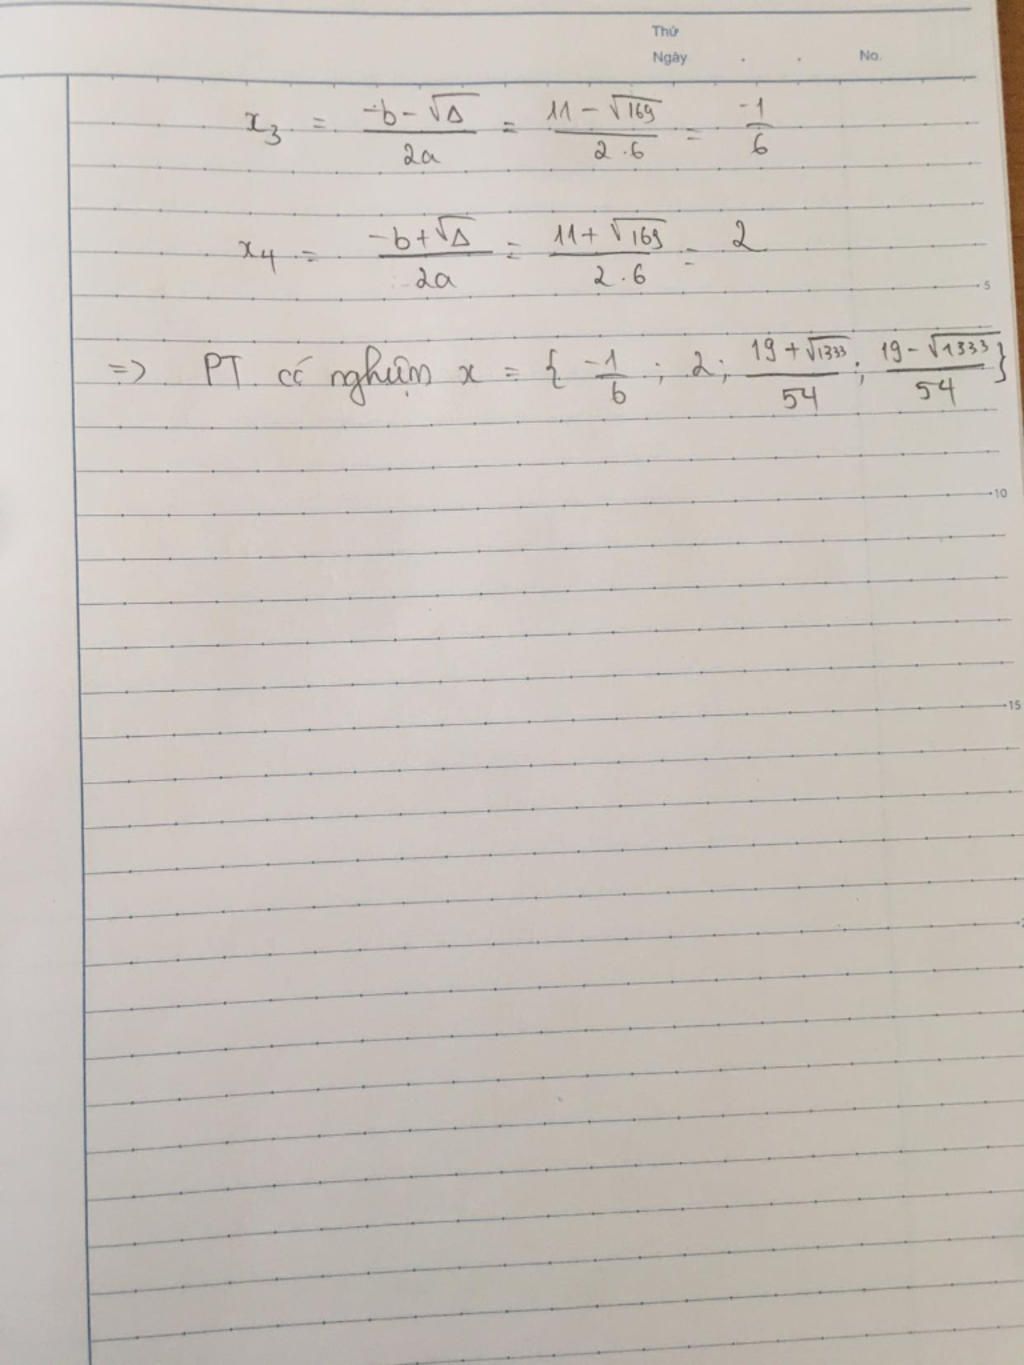 Thứ
Ngày . . No.
x₃ = (-b - √Δ)/(2a) = (11 - √169)/(2.6) = -1/6
x₄ = (-b + √Δ)/(2a) = (11 + √169)/(2.6) = 2
5
=> PT có nghiệm x = { -1/6 ; 2 ; (19 + √1333)/54 ; (19 - √1333)/54 }
10
15